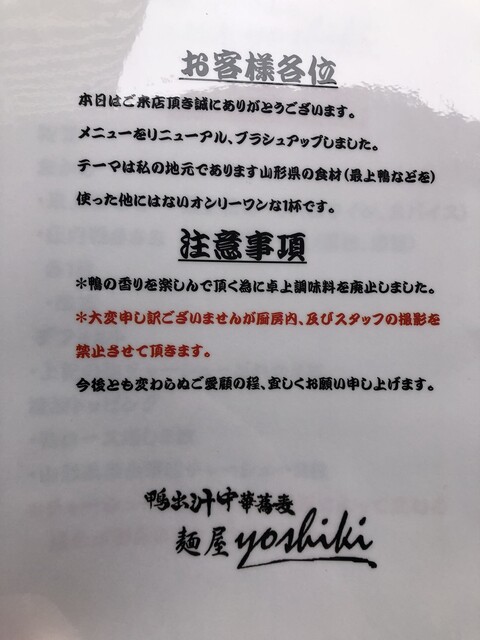 お客様各位
本日はご来店頂き誠にありがとうございます。
メニューをリニューアル、ブラシュアップしました。
テーマは私の地元であります山形県の食材(最上鴨などを)
使った他にはないオンリーワンな1杯です。
注意事項
*鴨の香りを楽しんで頂く為に卓上調味料を廃止しました。
*大変申し訳ございませんが厨房内、及びスタッフの撮影を
禁止させて頂きます。
今後とも変わらぬご愛顧の程、宜しくお願い申し上げます。
鴨出汁中華蕎麦
麺屋yoshiki